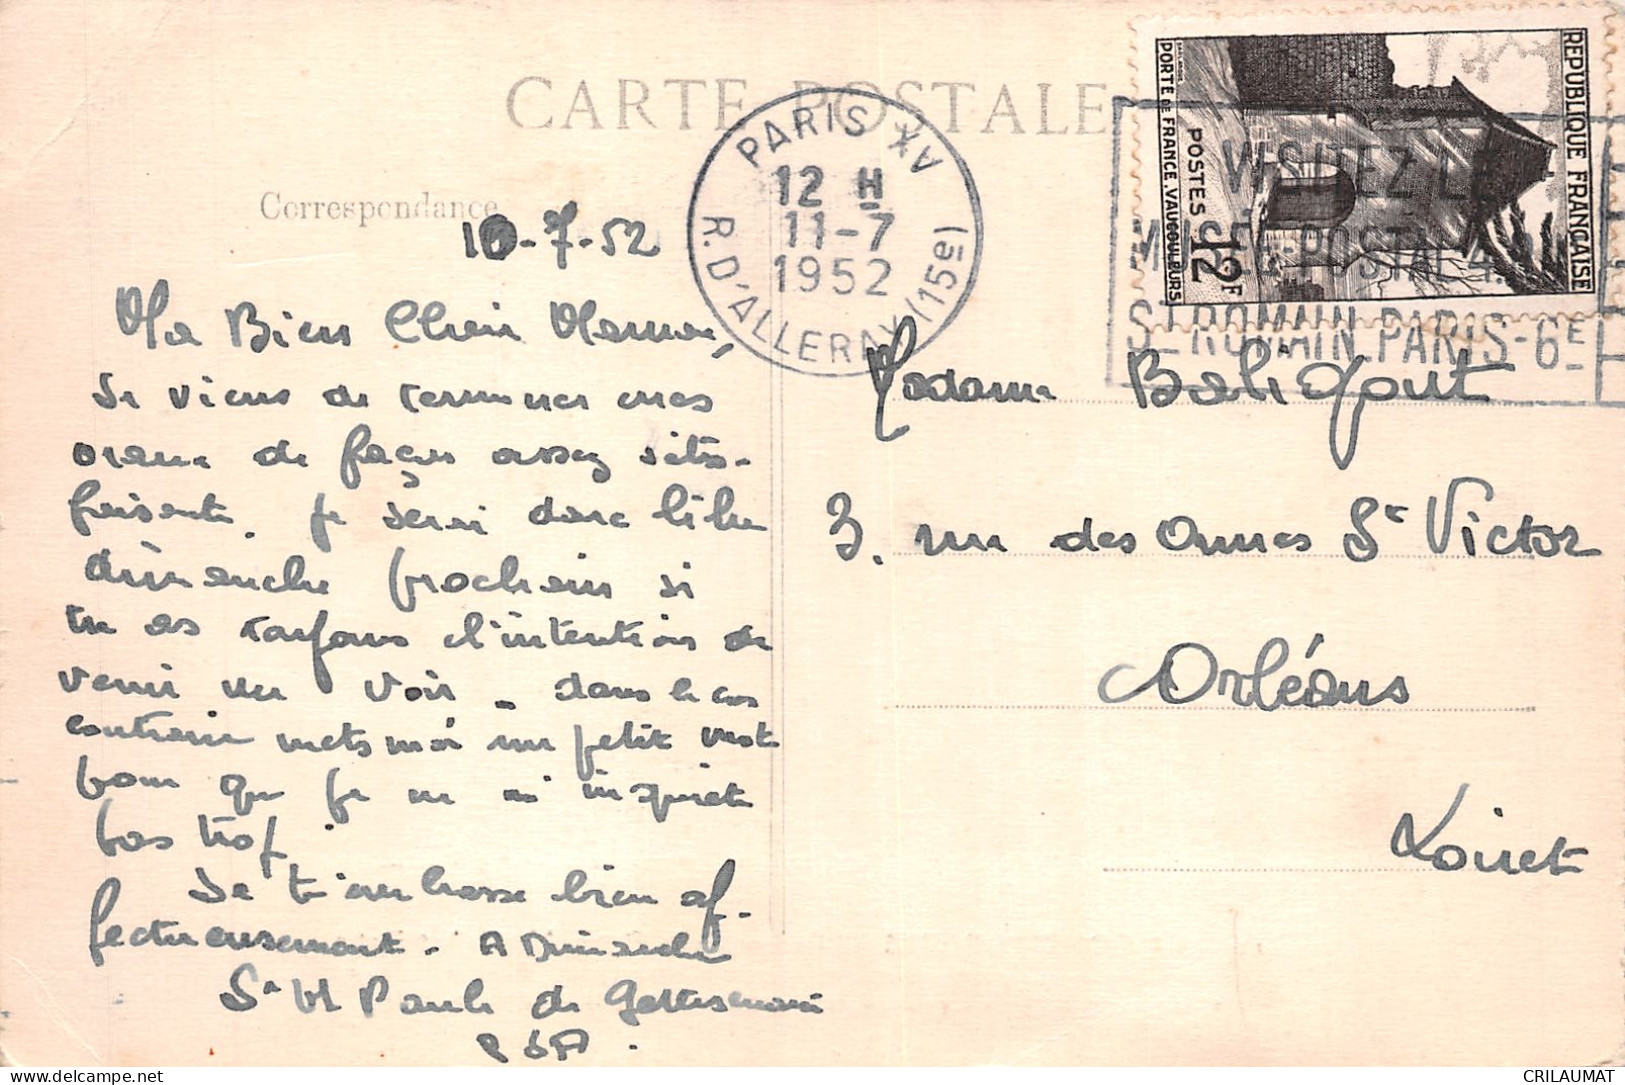 CARTE POSTALE
Correspondance
10-7-52
Ma Bien Chère Maman,
Je viens de terminer mes
oraux de façon assez satis-
faisante. Je serai donc libre
dimanche prochain si
tu as toujours l'intention de
venir me voir - dans le cas
contraire mets moi un petit mot
pour que je ne m'inquiète
pas trop.
Je t'embrasse bien af-
fectueusement. A Dimanche
Sr M Paule de
PARIS XV
12 H
11-7
1952
R. D'ALLERAY (15e)
REPUBLIQUE FRANÇAISE
POSTES 12F
PORTE DE FRANCE. VAUCOULEURS
VISITEZ LE
MUSÉE POSTAL 4. R.
ST ROMAIN. PARIS-6E
Madame
3. rue des Anses St Victor
Orléans
Loiret
CRILAUMAT